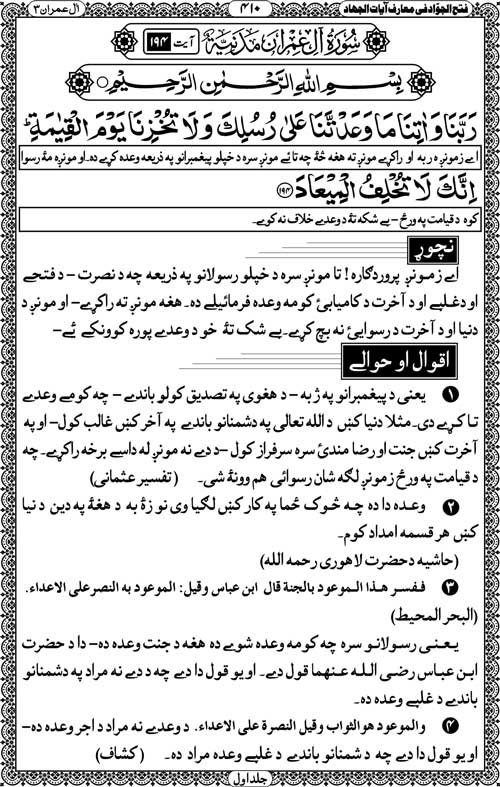 فتح الجوّاد فی معارف آیات الجهاد
۴۱۰
آل عمران ۳
سُوْرَةُ آلِ عِمْرَانَ مَدَنِیَّةٌ
آیت ۱۹۴
بِسْمِ اللهِ الرَّحْمٰنِ الرَّحِیْمِ
رَبَّنَا وَاٰتِنَا مَا وَعَدْتَّنَا عَلٰى رُسُلِكَ وَلَا تُخْزِنَا يَوْمَ الْقِيٰمَةِ ؕ
اے زمونږه ربه او راکړے مونږ ته هغه څۀ چه تا ئے مونږ سره د خپلو پیغمبرانو په ذریعه وعده کړے ده۔ او مونږه مۀ رسوا
اِنَّكَ لَا تُخْلِفُ الْمِيْعَادَ ﴿۱۹۴﴾
کوه د قیامت په ورځ – بے شکه تۀ د وعدے خلاف نه کوے۔
نچوړ
اے زمونږ پروردګاره! تا مونږ سره د خپلو رسولانو په ذریعه چه د نصرت – د فتحے
او د غلبے او د آخرت د کامیابئ کومه وعده فرمائیلے ده۔ هغه مونږ ته راکړے– او مونږ د
دنیا او د آخرت د رسوایئ نه بچ کړے۔ بے شک تۀ خو د وعدے پوره کوونکے ئے–
اقوال او حوالے
۱ یعنی د پیغمبرانو په ژبه – د هغوی په تصدیق کولو باندے – چه کومے وعدے
تا کړے دی۔ مثلا دنیا کښ د الله تعالی په دشمنانو باندے په آخر کښ غالب کول– او په
آخرت کښ جنت او رضا مندئ سره سرفراز کول– د دے نه مونږ له داسے برخه راکړے۔ چه
د قیامت په ورځ زمونږ لګه شان رسوائی هم وونۀ شی۔ (تفسیر عثمانی)
۲ وعده دا ده چه څوک ځما په کار کښ لګیا وی نو زۀ به د هغۀ په دین د نیا
کښ هر قسمه امداد کوم۔
(حاشیه د حضرت لاهوری رحمه الله)
۳ ففسر هذا الموعود بالجنة قال ابن عباس وقیل: الموعود به النصر علی الاعداء.
(البحر المحیط)
یعنی رسولانو سره چه کومه وعده شوے ده هغه د جنت وعده ده– دا د حضرت
ابن عباس رضی الله عنهما قول دے۔ او یو قول دا دے چه د دے نه مراد په دشمنانو
باندے د غلبے وعده ده۔
۴ والموعود هو الثواب وقیل النصرة علی الاعداء. د وعدے نه مراد د اجر وعده ده–
او یو قول دا دے چه د شمنانو باندے د غلبے وعده مراد ده۔ (کشاف)
جلد اول